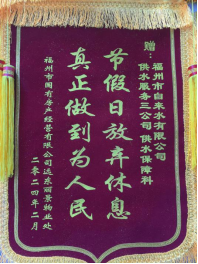 赠：
福州市自来水有限公司
供水服务三公司 供水保障科
节假日放弃休息
真正做到为人民
福州市国有房产经营有限公司远东丽景物业处
二零二四年二月